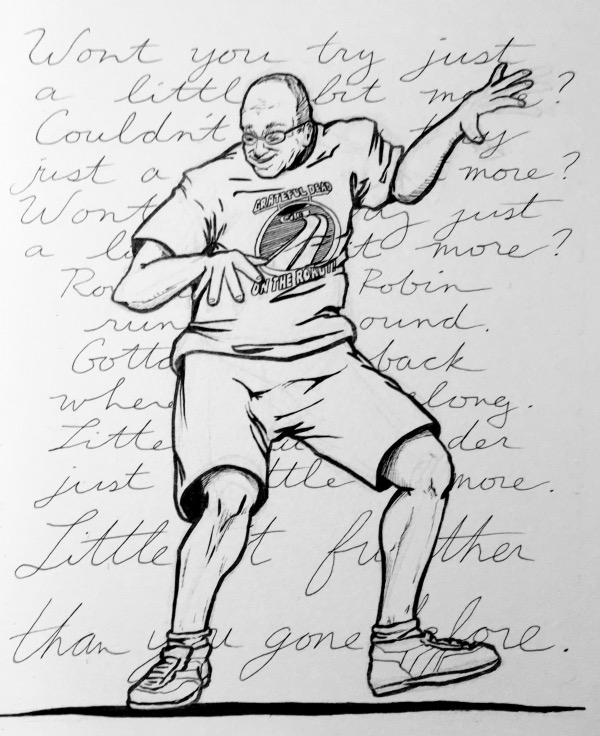 Wont you try just
a littl bit more?
Couldn't try
just a more?
Wont try just
a bit more?
Robin
run ound.
Gotta back
where elong.
Little der
just ttle more.
Little t further
than you gone before.
GRATEFUL DEAD
ON THE ROAD